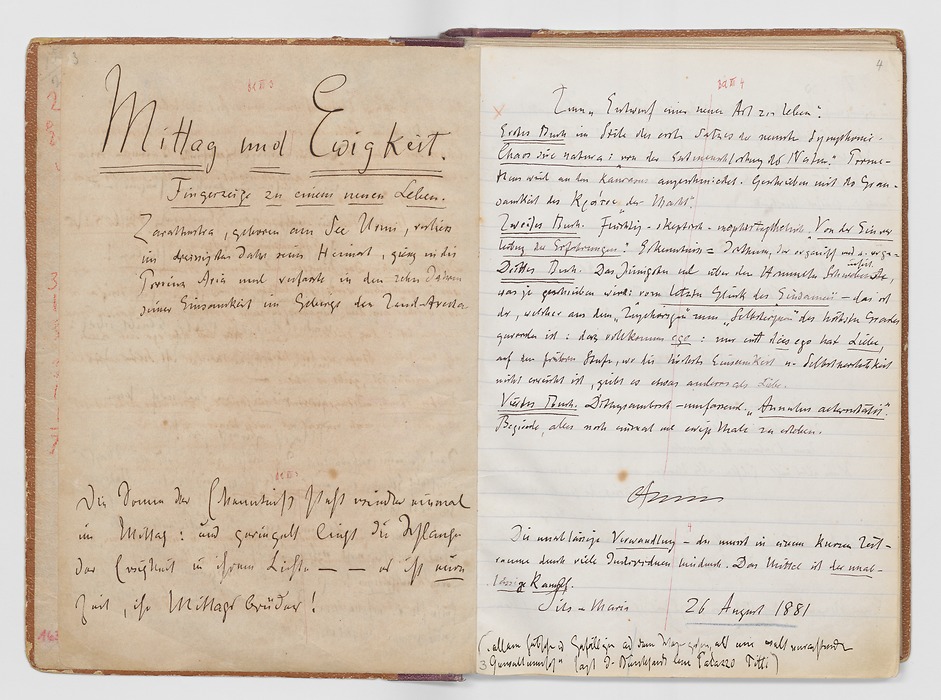 3
Mittag und Ewigkeit.
Fingerzeige zu einem neuen Leben.
Zarathustra, geboren am See Urmi, verliess
im dreissigsten Jahre seine Heimat, gieng in die
Provinz Aria und verfasste in den zehn Jahren
seiner Einsamkeit im Gebirge den Zend-Avesta.
Die Sonne der Erkenntniß steht wieder einmal
im Mittag: und geringelt liegt die Schlange
der Ewigkeit in ihrem Lichte — — es ist eure
Zeit, ihr Mittagsbrüder!
163
4
Zum „Entwurf einer neuen Art zu leben".
Erstes Buch im Stile des ersten Satzes der neunten Symphonie.
Chaos sive natura: „von der Entmenschlichung der Natur." Prome-
theus wird an den Kaucasus angeschmiedet. Geschrieben mit der Grau-
samkeit des Κράτος, „der Macht".
Zweites Buch. Flüchtig-skeptisch-mephistophelisch. „Von der Einver-
leibung der Erfahrungen". Erkenntniss = Irrthum, der organisch wird u. orga-
nisirt.
Drittes Buch. Das Innigste und über den Himmeln Schwebendste,
was je geschrieben wurde: „vom letzten Glück des Einsamen" — das ist
der, welcher aus dem „Zugehörigen" zum „Selbsteignen" des höchsten Grades
geworden ist: das vollkommne ego: nur erst dies ego hat Liebe,
auf den früheren Stufen, wo die höchste Einsamkeit u. Selbstherrlichkeit
nicht erreicht ist, giebt es etwas anderes als Liebe.
Viertes Buch. Dithyrambisch-umfassend. „Annulus aeternitatis".
Begierde, alles noch einmal und ewige Male zu erleben.
Die unablässige Verwandlung — du musst in einem kurzen Zeit-
raume durch viele Individuen hindurch. Das Mittel ist der unab-
lässige Kampf.
Sils-Maria 26 August 1881